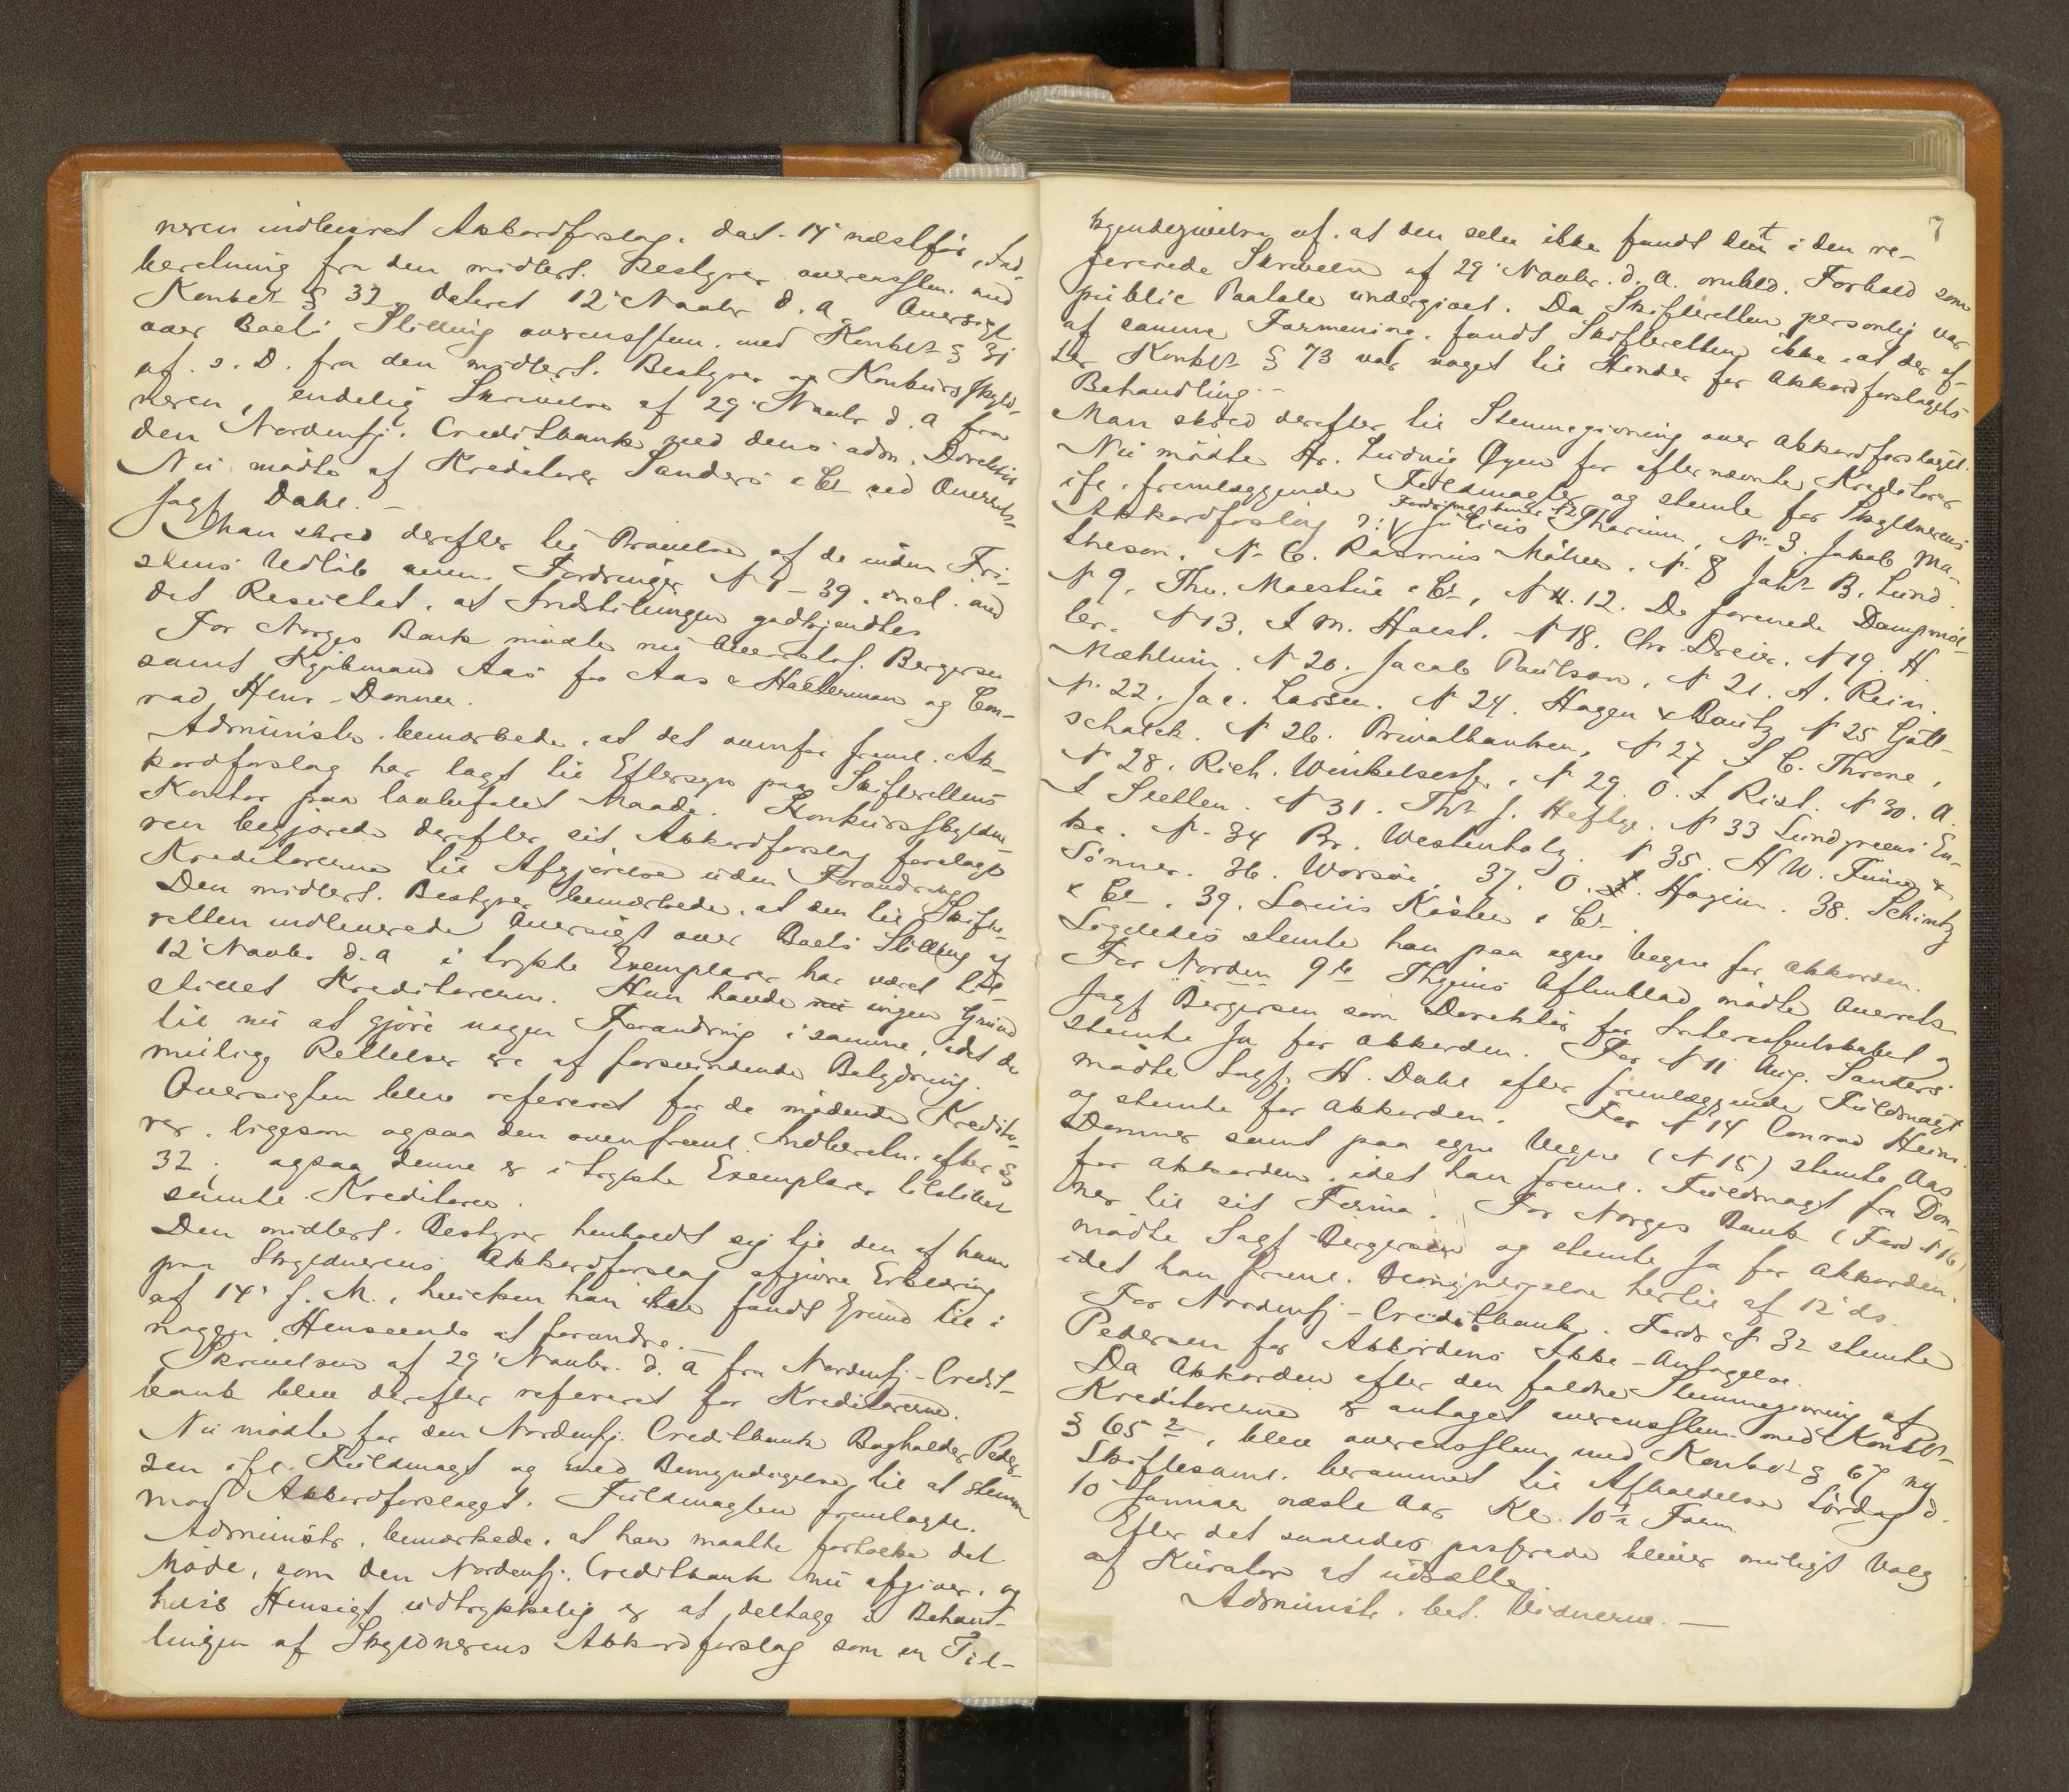 neren indleveret Akkordforslag. dat. 14' næstfør, Ind-
beretning fra den midlert. Bestyrer overensstem. med
Konkl § 32. dateret 12' Novbr d. a. Oversigt
over Boets Stilling overensstem. med Konkl § 31
af s. D. fra den midlert. Bestyrer og Konkursskyld-
neren, endelig Skrivelse af 29' Novbr d. a fra
den Nordenfj. Creditbank ved dens adm. Direktør
Nu mødte af Kreditorer Sanders & Co ved Overrets-
sagf. Dahl. -
Man skred derefter til Prøvelse af de inden Fri-
stens Udløb anm. Fordringer N 1 - 39. incl. med
det Resultat, at Indstillingen godkjendtes
For Norges Bank mødte nu Overretssf. Bergersen
samt Kjøbmand Aas for Aas & Halterman og Con-
rad Hinr. Donner.
Administr. bemærkede, at det ovenfor freml. Ak-
kordforslag har lagt til Eftersyn paa Skifterettens
Kontor paa lovbefalet Maade. Konkursskyldne-
ren begjærede derefter sit Akkordforslag forelagt
Kreditorerne til Afgjørelse uden Forandring
Den midlert. Bestyrer bemærkede, at den til Skifte-
retten indleverede Oversigt over Boets Stilling af
12' Novbr d. a i trykte Exemplarer har været til-
stillet Kreditorerne. Han havde nu ingen Grund
til nu at gjøre nogen Forandring i samme, idet de
mulige Rettelser er af forsvindende Betydning.
Oversigten blev refereret for de mødende Kredito-
rer. ligesom ogsaa den ovenfreml. Indberetn. efter §
32. ogsaa denne er i trykte Exemplarer tilstillet
samtl. Kreditorer.
Den midlert. Bestyrer henholdt sig til den af ham
paa Skyldnerens Akkordforslag afgivne Erklæring
af 14' f. M., hvilken han ikke fandt Grund til i
nogen Henseende at forandre. -
Skrivelsen af 29' Novbr. d. a fra Nordenfj. Credit-
bank blev derefter refereret for Kreditorerne.
Nu mødte for den Nordenfj. Creditbank Bogholder Peder-
sen ifl. Fuldmagt og med Bemyndigelse til at stemme
mod Akkordforslaget. Fuldmagten fremlagde.
Administr. bemærkede, at han maatte fortolke det
Møde, som den Nordenfj. Creditbank nu afgiver, og
hvis Hensigt udtrykkelig er at deltage i Behand-
lingen af Skyldnerens Akkordforslag som en Til-
7
kjendegivelse af, at den selv ikke fandt det i den re-
fererede Skrivelse af 29' Novbr. d. a. omhld. Forhold som
public Paatale undergivet. Da Skifteretten personlig var
af samme Formening, fandt Skifteretten ikke, at der ef-
ter Konkl § 73 var noget til Hinder for Akkordforslagets
Behandling. -
Man skred derefter til Stemmegivning over Akkordforslaget.
Nu mødte Hr. Ludvig Øyen for efternævnte Kreditorer
ifl. fremlæggende Fuldmagter og stemte for Skyldnerens
Akkordforslag ɔ: Julius Tharum, N. 3. Jakob Ma-
theson. N. 6. Rasmus Møller. N. 8 Johs B. Lund.
N 9. Thv. Maestue & Co, N 12. De forenede Dampmøl-
ler. N 13. I M. Haest. N 18. Chr. Dreier. N 19. H.
Mæhlum. N 20. Jacob Paulson. N 21. A. Rein.
N. 22. Jac. Larsen. N 24. Hagen & Bautz N 25 Gott-
schalck. N 26. Privatbanken, N 27 I C. Throne,
N 28. Rich. Winkelsesser. N 29. O. I Rist. N 30. A.
I Stetten. N 31. Ths J. Heftye. N 33 Lundgreens En-
ke. N. 34 Br. Westenholz. N 35. H W. Finne &
Sønner. 36. Worsøe 37. O. I. Hagen. 38. Schintz
& Co. 39. Louis Köster & Co
Ligeledes stemte han paa egne Vegne for Akkorden.
For Norden 9 Thgims Aftenblad mødte Overrets-
sagf Bergersen som Direktør for Interessentskabet og
stemte Ja for Akkorden. For N 11 Aug. Santers
mødte Sagf. H. Dahl efter fremlæggende Fuldmagt
og stemte for Akkorden. For N 14 Conrad Heinr.
Donner samt paa egne Vegne (N 15) stemte Aas
for Akkorden, idet han freml. Fuldmagt fra Don-
ner til sit Firma. For Norges Bank (Ford N 16)
mødte Sagf Bergersen og stemte Ja for Akkorden.
idet han freml. Bemyndigelse hertil af 12' ds.
For Nordenfj. Creditbank. Fordr N 32 stemte
Pedersen for Akkordens Ikke-Antagelse.
Da Akkorden efter den faldne Stemmegivning af
Kreditorerne er antaget overensstem med Konkl
§ 65 2, blev overensstem med Konkl § 67 ny
Skiftesaml. berammet til Afholdelse Lørdag d.
10' Januar næste Aar Kl. 10½ Form
Efter det saaledes passerede bliver muligt Valg
af Kurator at udsætte.
Administr. bet. Vidnerne. -